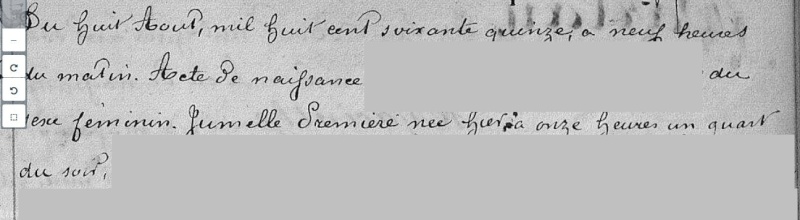 Du huit Aout, mil huit cent soixante quinze, a neuf heures
du matin. Acte de naissance du
sexe féminin. Jumelle Premiere nee hier, a onze heures un quart
du soir,